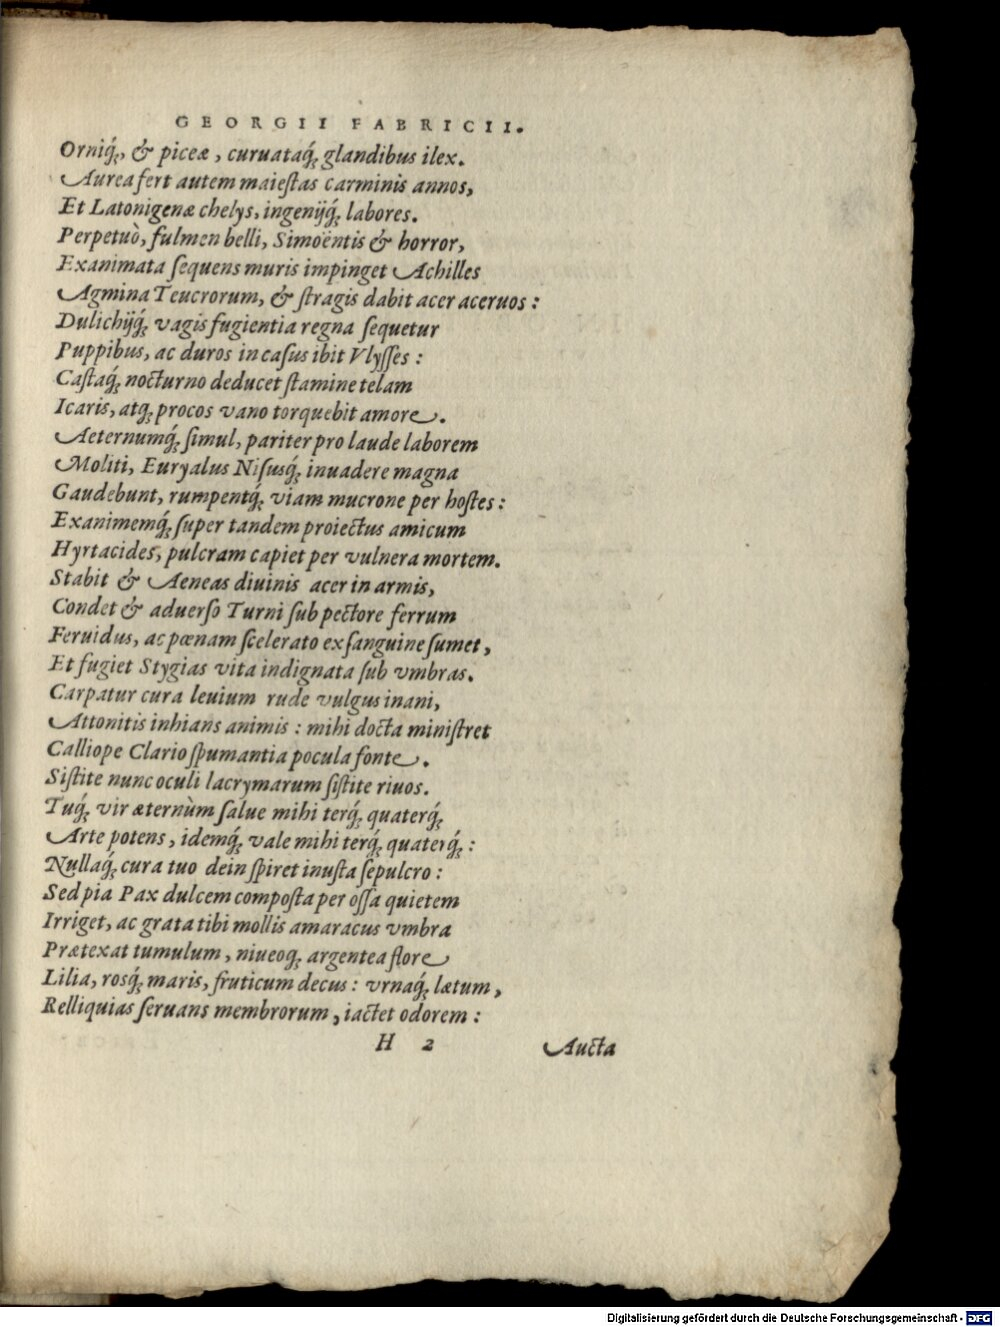 GEORGII FABRICII.
Orniq́;, & piceæ, curuataq́; glandibus ilex.
Aurea fert autem maiestas carminis annos,
Et Latonigenæ chelys, ingenijq́; labores.
Perpetuò, fulmen belli, Simoëntis & horror,
Exanimata sequens muris impinget Achilles
Agmina Teucrorum, & stragis dabit acer aceruos:
Dulichijq́; vagis fugientia regna sequetur
Puppibus, ac duros in casus ibit Vlysses:
Castaq́; nocturno deducet stamine telam
Icaris, atq; procos vano torquebit amore.
Aeternumq́; simul, pariter pro laude laborem
Moliti, Euryalus Nisusq́; inuadere magna
Gaudebunt, rumpentq́; viam mucrone per hostes:
Exanimemq́; super tandem proiectus amicum
Hyrtacides, pulcram capiet per vulnera mortem.
Stabit & Aeneas diuinis acer in armis,
Condet & aduerso Turni sub pectore ferrum
Feruidus, ac pœnam scelerato ex sanguine sumet,
Et fugiet Stygias vita indignata sub vmbras.
Carpatur cura leuium rude vulgus inani,
Attonitis inhians animis: mihi docta ministret
Calliope Clario spumantia pocula fonte.
Sistite nunc oculi lacrymarum sistite riuos.
Tuq́; vir æternùm salue mihi terq́; quaterq́;
Arte potens, idemq́; vale mihi terq́; quaterq́;:
Nullaq́; cura tuo dein spiret inusta sepulcro:
Sed pia Pax dulcem composta per ossa quietem
Irriget, ac grata tibi mollis amaracus vmbra
Prætexat tumulum, niueoq; argentea flore
Lilia, rosq́; maris, fruticum decus: vrnaq́; lætum,
Relliquias seruans membrorum, iactet odorem:
H 2 Aucta
Digitalisierung gefördert durch die Deutsche Forschungsgemeinschaft - DFG